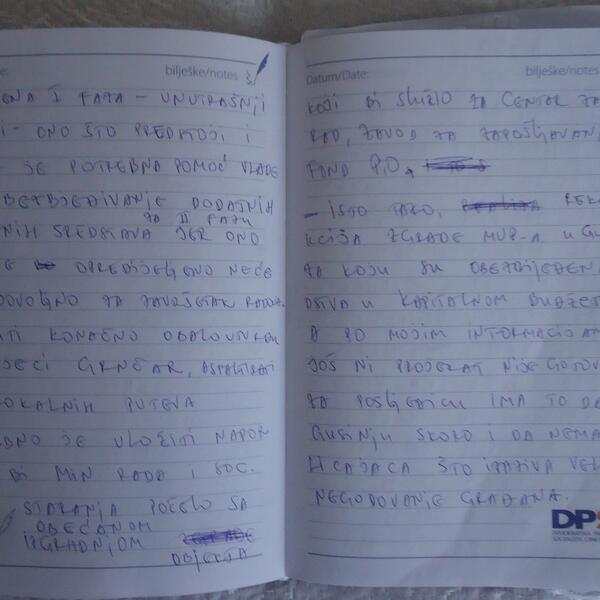 e:
bilješke/notes
ENA I FAZA - UNUTRAŠNJI
I - ONO ŠTO PREDSTOJI I
JE POTREBNA POMOĆ VLADE
OBEZBJEĐIVANJE DODATNIH
ZA II FAZU
NIH SREDSTAVA JER ONO
E OPREDIJELJENO NEĆE
DOVOLJNO ZA ZAVRŠETAK RADOVA.
TI KONAČNO
JECI GRNČAR, ASFALTIRATI
LOKALNIH PUTEVA
BNO JE ULOŽITI NAPOR
BI MIN RADA I SOC.
STARANJA POČELO SA
OBEĆANOM
IZGRADNJOM
OBJEKTA
Datum/Date:
bilješke/notes
KOJI BI SLUŽIO ZA CENTAR ZA
RAD, ZAVOD ZA ZAPOŠLJAVAN
FOND PIO,
- ISTO TAKO, REK
KCIJA ZGRADE MUP-A U GU
ZA KOJU SU OBEZBIJEĐEN
DSTVA U KAPITALNOM BUDŽET
A PO MOJIM INFORMACIJAM
JOŠ NI PROJEKAT NIJE GOTOV
ZA POSLJEDICU IMA TO DA
GUSINJU SKORO I DA NEMA
ŠTO IZAZIVA VEL
NEGODOVANJE GRAĐANA.
DPS